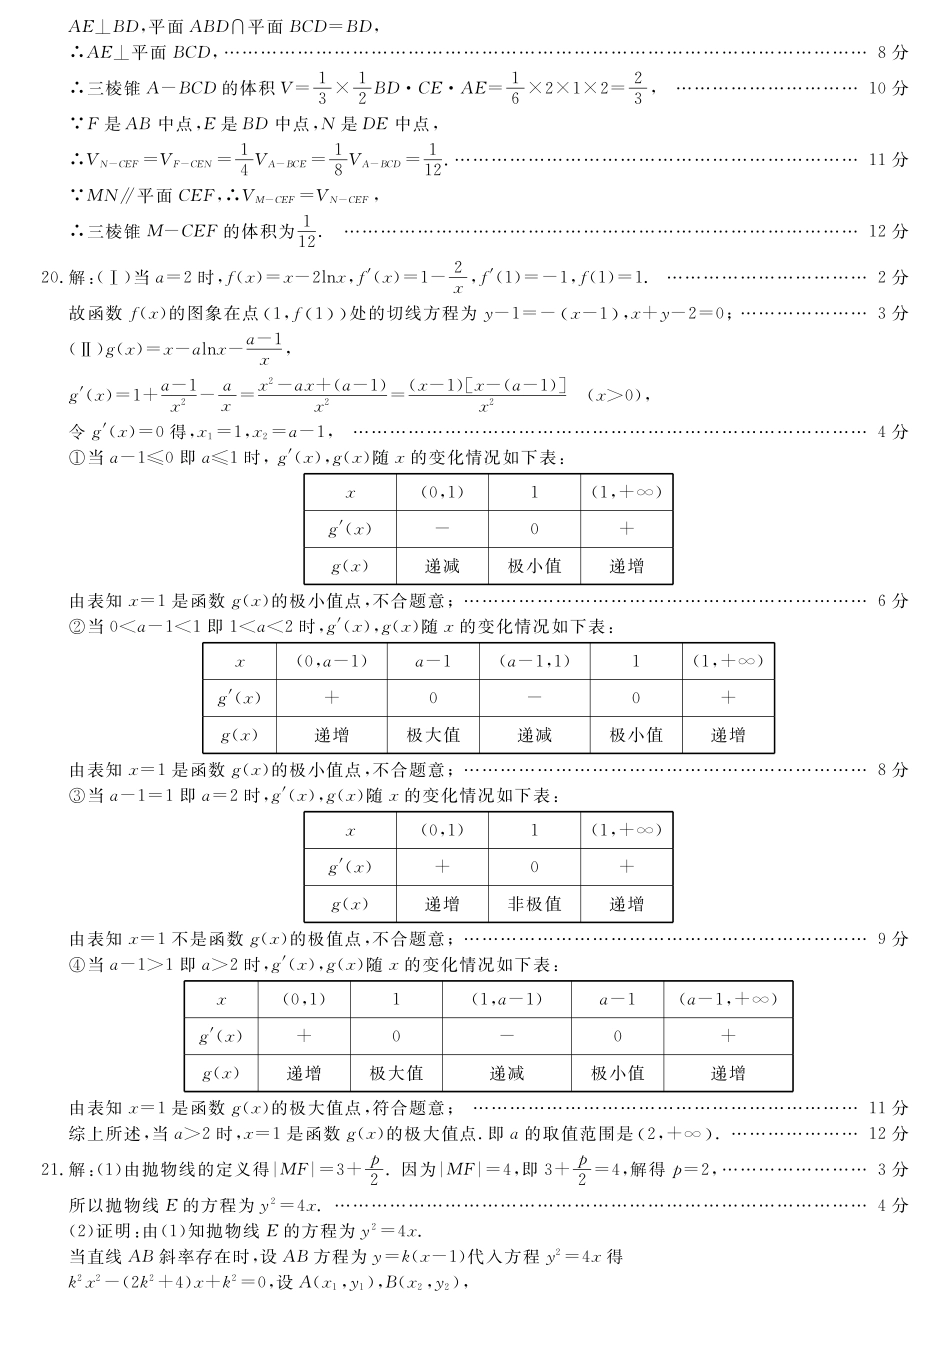 AE⊥BD,平面 ABD∩平面 BCD=BD,
∴AE⊥平面 BCD, …………………………………………………………………………………… 8 分
∴三棱锥 A-BCD 的体积 V=1/3×1/2BD·CE·AE=1/6×2×1×2=2/3, ………………………… 10 分
∵F 是 AB 中点,E 是 BD 中点,N 是 DE 中点,
∴V_{N-CEF}=V_{F-CEN}=1/4V_{A-BCE}=1/8V_{A-BCD}=1/12. ………………………………………………………… 11 分
∵MN∥平面 CEF,∴V_{M-CEF}=V_{N-CEF},
∴三棱锥 M-CEF 的体积为1/12. ………………………………………………………………………… 12 分
20. 解:(Ⅰ)当 a=2 时,f(x)=x-2lnx,f′(x)=1-2/x,f′(1)=-1,f(1)=1. …………………………… 2 分
故函数 f(x)的图象在点(1,f(1))处的切线方程为 y-1=-(x-1),x+y-2=0; ………………… 3 分
(Ⅱ)g(x)=x-alnx-(a-1)/x,
g′(x)=1+(a-1)/x²-a/x=(x²-ax+(a-1))/x²=((x-1)[x-(a-1)])/x² (x>0),
令 g′(x)=0 得,x₁=1,x₂=a-1, ………………………………………………………………………… 4 分
①当 a-1≤0 即 a≤1 时, g′(x),g(x)随 x 的变化情况如下表:
x (0,1) 1 (1,+∞)
g′(x) - 0 +
g(x) 递减 极小值 递增
由表知 x=1 是函数 g(x)的极小值点,不合题意; ………………………………………………………… 6 分
②当 0<a-1<1 即 1<a<2 时,g′(x),g(x)随 x 的变化情况如下表:
x (0,a-1) a-1 (a-1,1) 1 (1,+∞)
g′(x) + 0 - 0 +
g(x) 递增 极大值 递减 极小值 递增
由表知 x=1 是函数 g(x)的极小值点,不合题意; ………………………………………………………… 8 分
③当 a-1=1 即 a=2 时,g′(x),g(x)随 x 的变化情况如下表:
x (0,1) 1 (1,+∞)
g′(x) + 0 +
g(x) 递增 非极值 递增
由表知 x=1 不是函数 g(x)的极值点,不合题意; ………………………………………………………… 9 分
④当 a-1>1 即 a>2 时,g′(x),g(x)随 x 的变化情况如下表:
x (0,1) 1 (1,a-1) a-1 (a-1,+∞)
g′(x) + 0 - 0 +
g(x) 递增 极大值 递减 极小值 递增
由表知 x=1 是函数 g(x)的极大值点,符合题意; ……………………………………………………… 11 分
综上所述,当 a>2 时,x=1 是函数 g(x)的极大值点.即 a 的取值范围是(2,+∞). ………………… 12 分
21. 解:(1)由抛物线的定义得|MF|=3+p/2. 因为|MF|=4,即 3+p/2=4,解得 p=2, …………………… 3 分
所以抛物线 E 的方程为 y²=4x. …………………………………………………………………………… 4 分
(2)证明:由(1)知抛物线 E 的方程为 y²=4x.
当直线 AB 斜率存在时,设 AB 方程为 y=k(x-1)代入方程 y²=4x 得
k²x²-(2k²+4)x+k²=0,设 A(x₁,y₁),B(x₂,y₂),